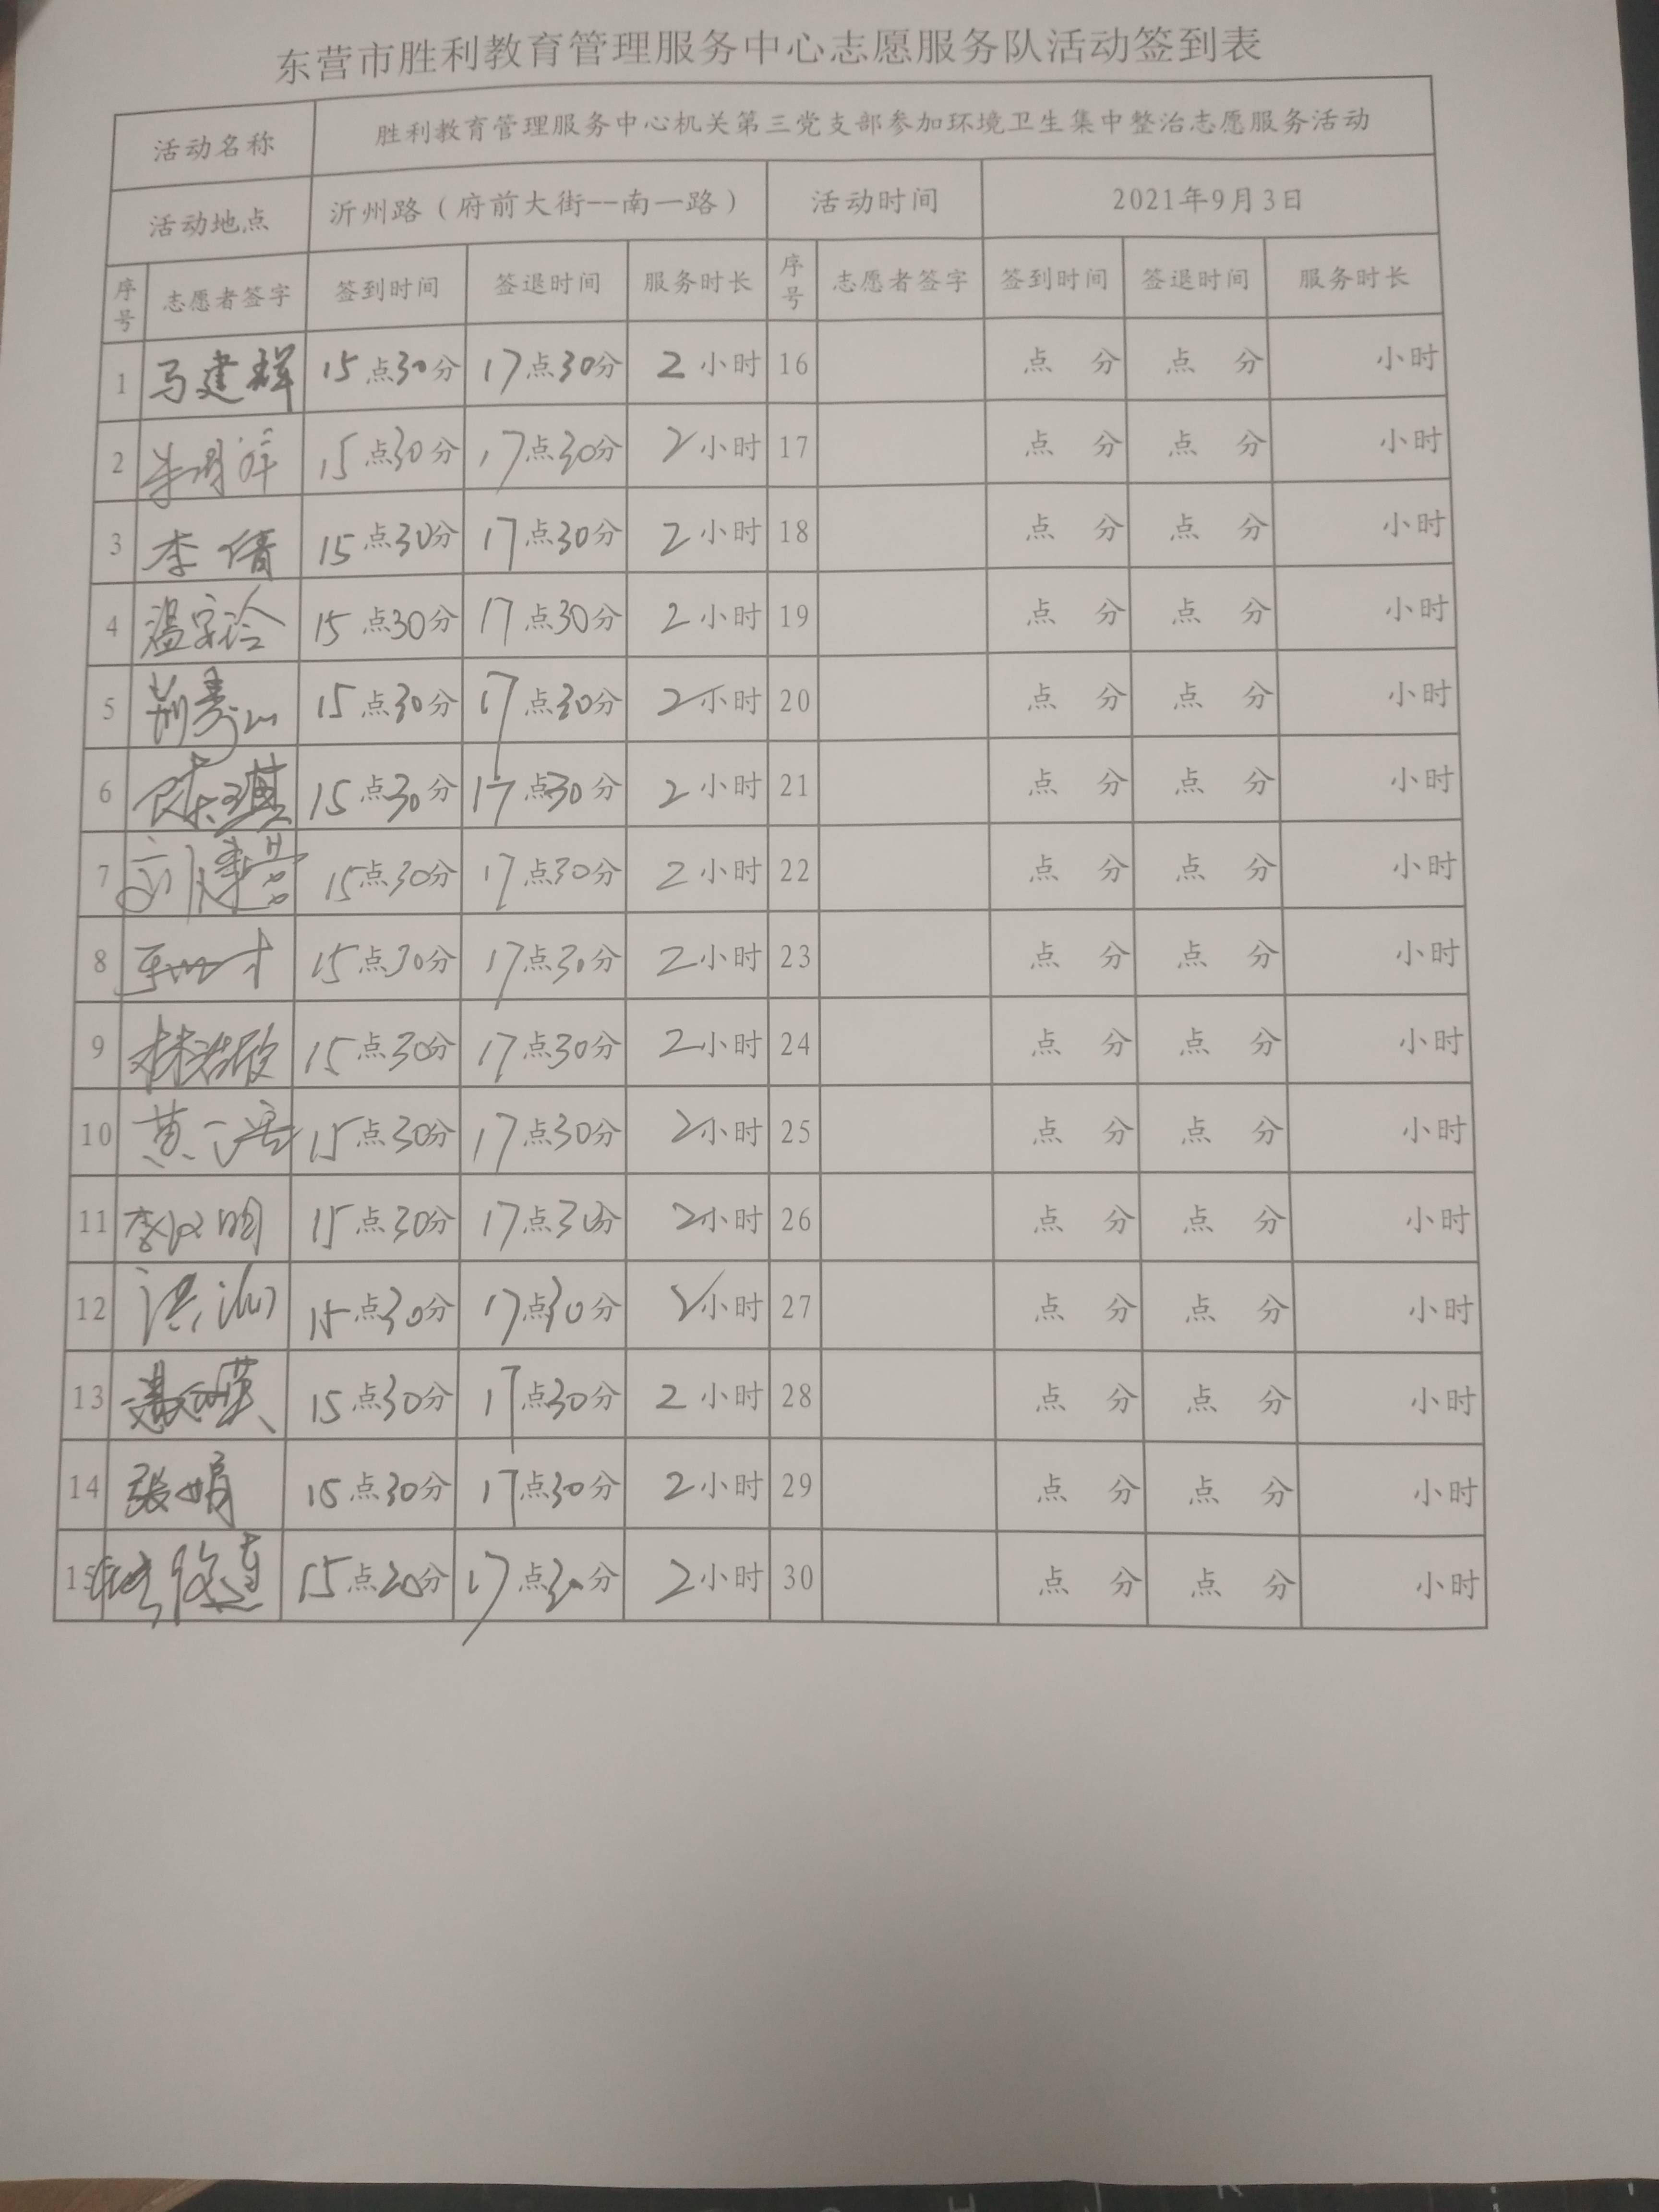 东营市胜利教育管理服务中心志愿服务队活动签到表
活动名称 胜利教育管理服务中心机关第三党支部参加环境卫生集中整治志愿服务活动
活动地点 沂州路（府前大街--南一路） 活动时间 2021年9月3日
序号 志愿者签字 签到时间 签退时间 服务时长 序号 志愿者签字 签到时间 签退时间 服务时长
1 马建群 15点30分 17点30分 2小时 16 点 分 点 分 小时
2 15点30分 17点30分 2小时 17 点 分 点 分 小时
3 李倩 15点30分 17点30分 2小时 18 点 分 点 分 小时
4 15点30分 17点30分 2小时 19 点 分 点 分 小时
5 荆寿山 15点30分 17点30分 2小时 20 点 分 点 分 小时
6 陈琪 15点30分 17点30分 2小时 21 点 分 点 分 小时
7 刘建营 15点30分 17点30分 2小时 22 点 分 点 分 小时
8 15点30分 17点30分 2小时 23 点 分 点 分 小时
9 15点30分 17点30分 2小时 24 点 分 点 分 小时
10 15点30分 17点30分 2小时 25 点 分 点 分 小时
11 15点30分 17点30分 2小时 26 点 分 点 分 小时
12 15点30分 17点30分 2小时 27 点 分 点 分 小时
13 15点30分 17点30分 2小时 28 点 分 点 分 小时
14 张娟 15点30分 17点30分 2小时 29 点 分 点 分 小时
15 15点30分 17点30分 2小时 30 点 分 点 分 小时